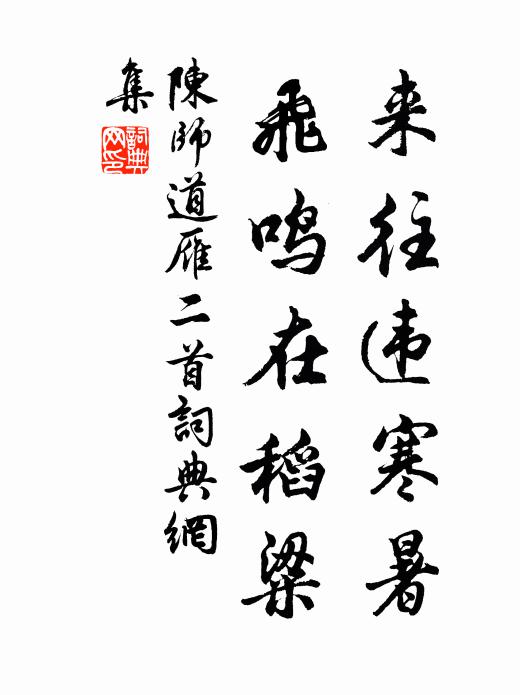 来往违寒暑
飛鸣在稻粱
陳師道雁二首詞典網
集
詞典
网印